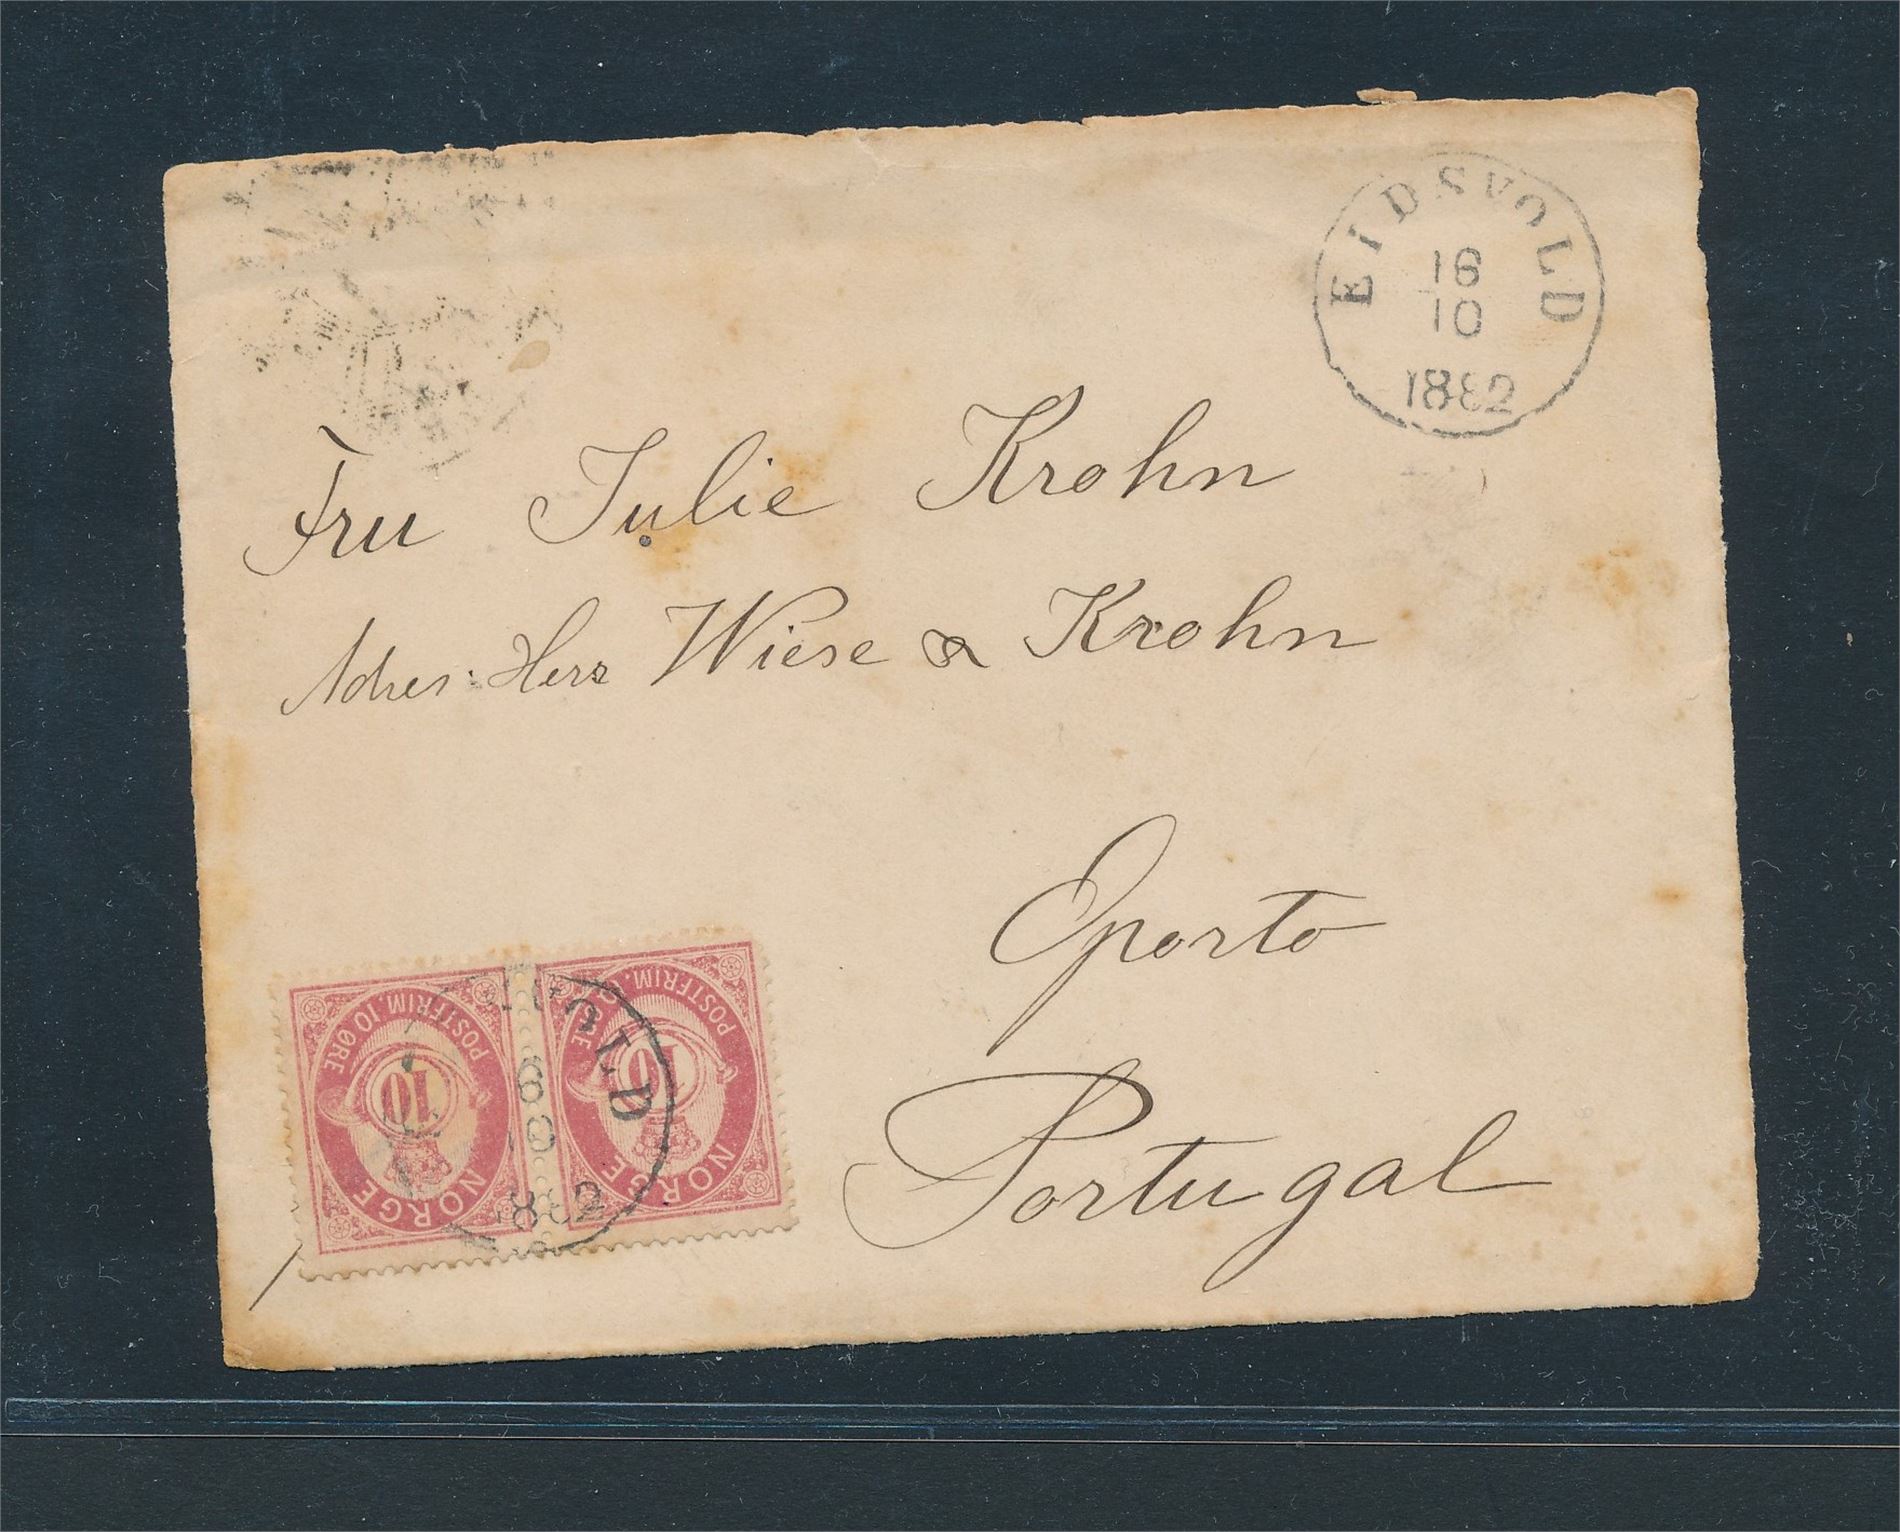 EIDSVOLD
16
10
1882
Fru Julie Krohn
Adres: Herr Wiese & Krohn
Oporto
Portugal
POSTFRIM. 10 ØRE
10
NORGE
POSTFRIM.
10
NORGE